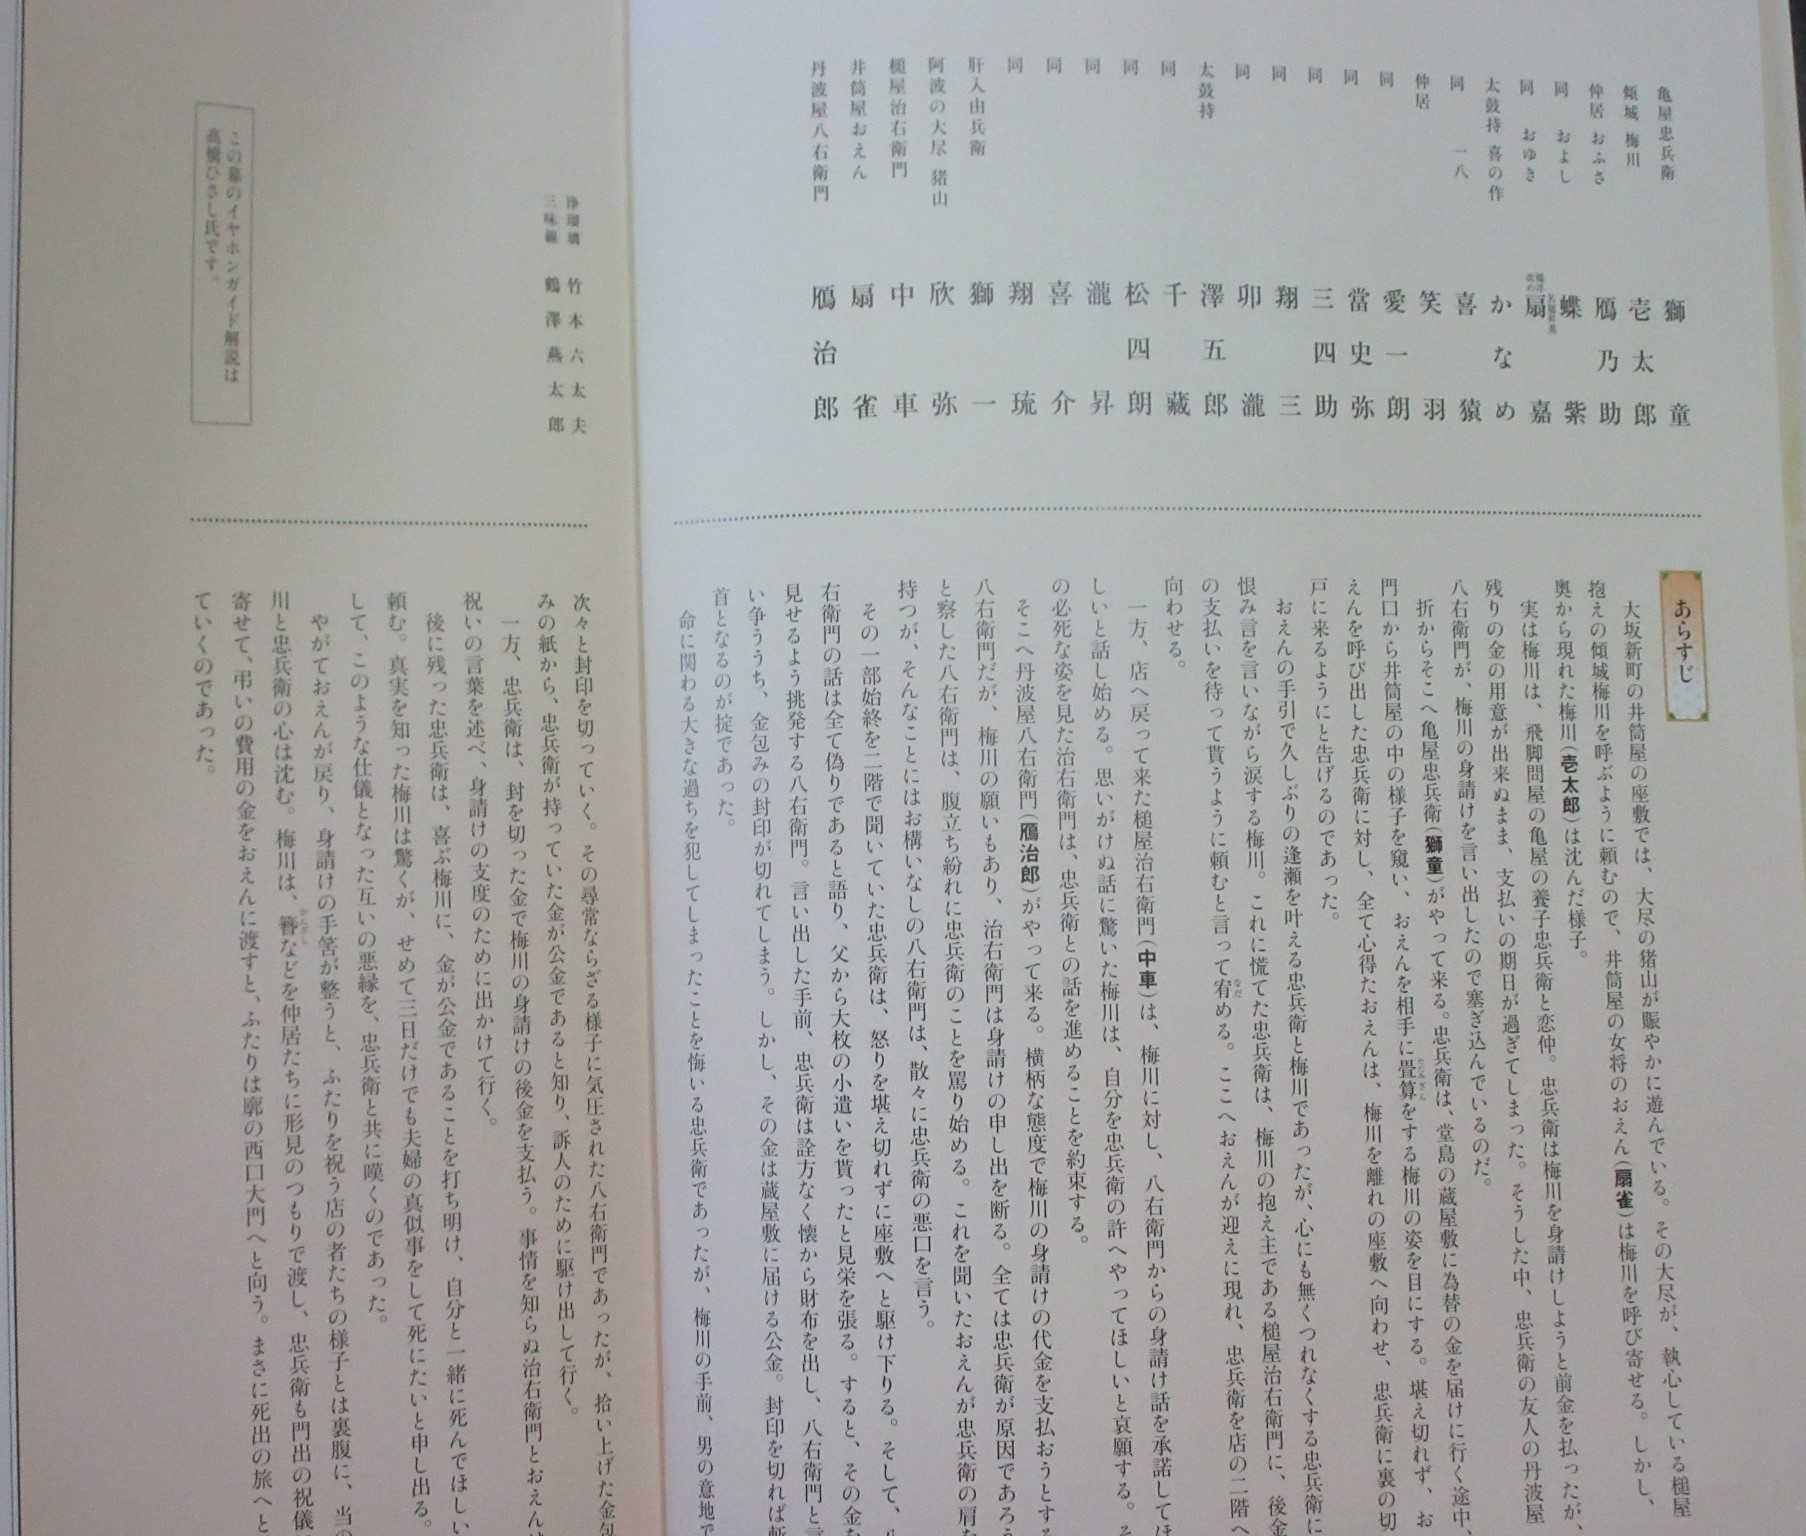 亀屋忠兵衛 獅童
傾城 梅川 壱太郎
仲居 おふさ 鴈乃助
同 およし 蝶紫
同 おゆき 扇嘉
太鼓持 喜の作 かなめ
同 一八 喜猿
仲居 笑羽
同 愛一朗
同 當史弥
同 三四助
同 翔三
同 卯瀧
太鼓持 澤五郎
同 千藏
同 松四朗
同 瀧昇
同 喜介
同 翔琉
肝入由兵衛 獅一
阿波の大尽 猪山 欣弥
槌屋治右衛門 中車
井筒屋おえん 扇雀
丹波屋八右衛門 鴈治郎
浄瑠璃 竹本六太夫
三味線 鶴澤燕太郎
この幕のイヤホンガイド解説は
高橋ひさし氏です。
あらすじ
大坂新町の井筒屋の座敷では、大尽の猪山が賑やかに遊んでいる。その大尽が、執心している槌屋
抱えの傾城梅川を呼ぶように頼むので、井筒屋の女将のおえん(扇雀)は梅川を呼び寄せる。しかし、
奥から現れた梅川(壱太郎)は沈んだ様子。
実は梅川は、飛脚問屋の亀屋の養子忠兵衛と恋仲。忠兵衛は梅川を身請けしようと前金を払ったが、
残りの金の用意が出来ぬまま、支払いの期日が過ぎてしまった。そうした中、忠兵衛の友人の丹波屋
八右衛門が、梅川の身請けを言い出したので塞ぎ込んでいるのだ。
折からそこへ亀屋忠兵衛(獅童)がやって来る。忠兵衛は、堂島の蔵屋敷に為替の金を届けに行く途中、
門口から井筒屋の中の様子を窺い、おえんを相手に畳算をする梅川の姿を目にする。堪え切れず、お
えんを呼び出した忠兵衛に対し、全て心得たおえんは、梅川を離れの座敷へ向わせ、忠兵衛に裏の切
戸に来るようにと告げるのであった。
おえんの手引で久しぶりの逢瀬を叶える忠兵衛と梅川であったが、心にも無くつれなくする忠兵衛に
恨み言を言いながら涙する梅川。これに慌てた忠兵衛は、梅川の抱え主である槌屋治右衛門に、後金
の支払いを待って貰うように頼むと言って宥める。ここへおえんが迎えに現れ、忠兵衛を店の二階へ
向わせる。
一方、店へ戻って来た槌屋治右衛門(中車)は、梅川に対し、八右衛門からの身請け話を承諾してほ
しいと話し始める。思いがけぬ話に驚いた梅川は、自分を忠兵衛の許へやってほしいと哀願する。そ
の必死な姿を見た治右衛門は、忠兵衛との話を進めることを約束する。
そこへ丹波屋八右衛門(鴈治郎)がやって来る。横柄な態度で梅川の身請けの代金を支払おうとする
八右衛門だが、梅川の願いもあり、治右衛門は身請けの申し出を断る。全ては忠兵衛が原因であろう
と察した八右衛門は、腹立ち紛れに忠兵衛のことを罵り始める。これを聞いたおえんが忠兵衛の肩を
持つが、そんなことにはお構いなしの八右衛門は、散々に忠兵衛の悪口を言う。
その一部始終を二階で聞いていた忠兵衛は、怒りを堪え切れずに座敷へと駆け下りる。そして、八
右衛門の話は全て偽りであると語り、父から大枚の小遣いを貰ったと見栄を張る。すると、その金を
見せるよう挑発する八右衛門。言い出した手前、忠兵衛は詮方なく懐から財布を出し、八右衛門と言
い争ううち、金包みの封印が切れてしまう。しかし、その金は蔵屋敷に届ける公金。封印を切れば斬
首となるのが掟であった。
命に関わる大きな過ちを犯してしまったことを悔いる忠兵衛であったが、梅川の手前、男の意地で
次々と封印を切っていく。その尋常ならざる様子に気圧された八右衛門であったが、拾い上げた金包
みの紙から、忠兵衛が持っていた金が公金であると知り、訴人のために駆け出して行く。
一方、忠兵衛は、封を切った金で梅川の身請けの後金を支払う。事情を知らぬ治右衛門とおえんは
祝いの言葉を述べ、身請けの支度のために出かけて行く。
後に残った忠兵衛は、喜ぶ梅川に、金が公金であることを打ち明け、自分と一緒に死んでほしい
頼む。真実を知った梅川は驚くが、せめて三日だけでも夫婦の真似事をして死にたいと申し出る。
して、このような仕儀となった互いの悪縁を、忠兵衛と共に嘆くのであった。
やがておえんが戻り、身請けの手筈が整うと、ふたりを祝う店の者たちの様子とは裏腹に、当の
川と忠兵衛の心は沈む。梅川は、簪などを仲居たちに形見のつもりで渡し、忠兵衛も門出の祝儀
寄せて、弔いの費用の金をおえんに渡すと、ふたりは廓の西口大門へと向う。まさに死出の旅へと
ていくのであった。